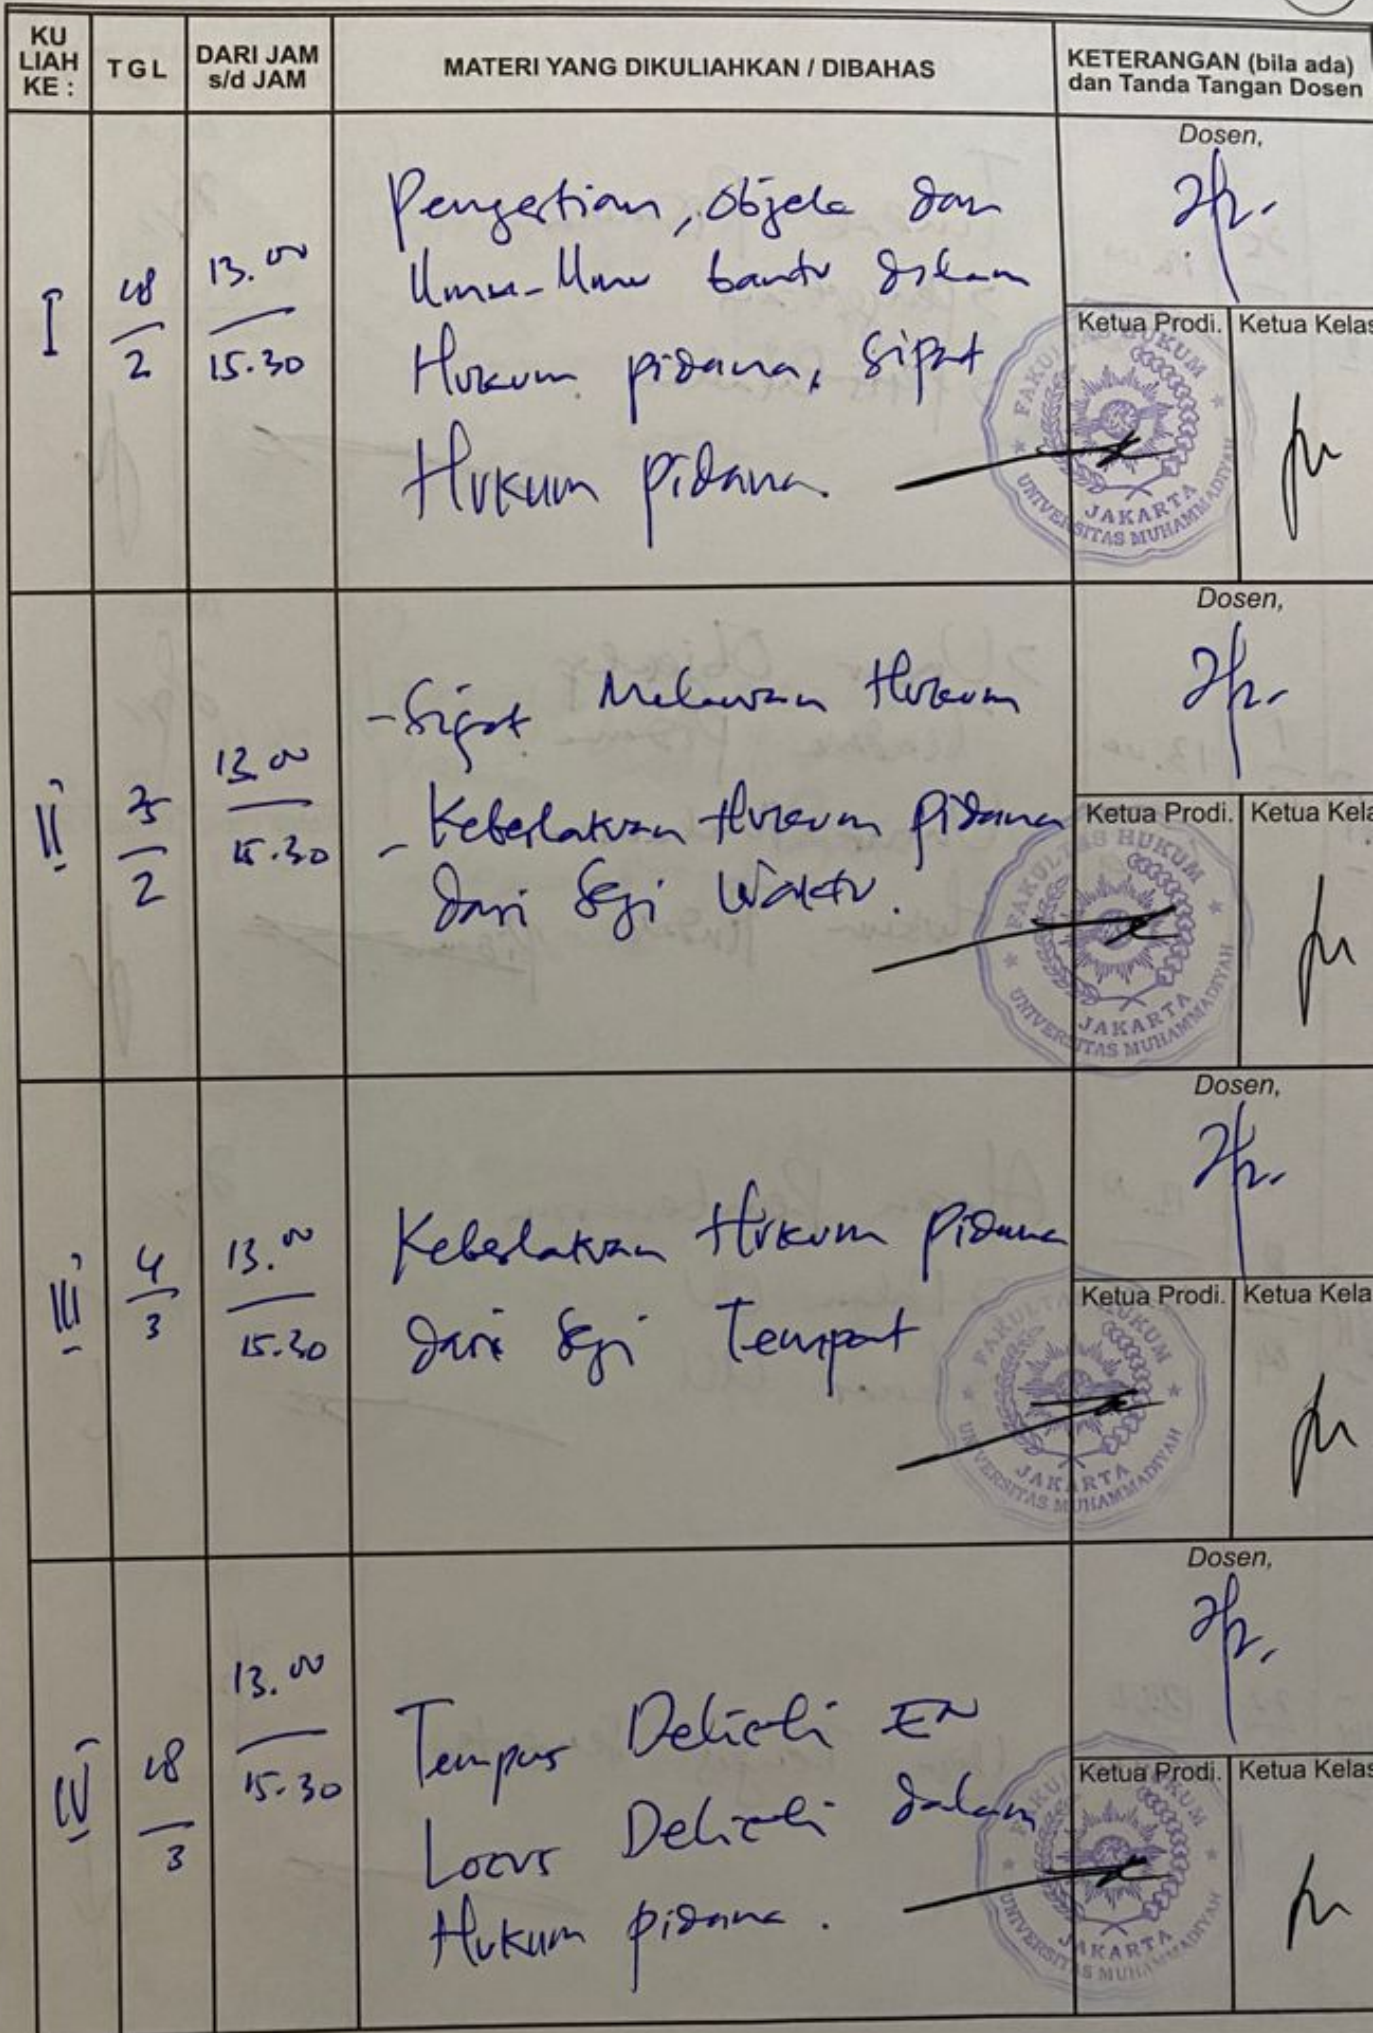 KU LIAH KE :
TGL
DARI JAM s/d JAM
MATERI YANG DIKULIAHKAN / DIBAHAS
KETERANGAN (bila ada) dan Tanda Tangan Dosen
I
18/2
13.00
15.30
Pengertian, Objek dan
Ilmu-Ilmu bantu dalam
Hukum pidana, Sipat
Hukum Pidana.
Dosen,
Ketua Prodi.
Ketua Kelas
FAKULTAS HUKUM
UNIVERSITAS MUHAMMADIYAH
JAKARTA
II
25/2
13.00
15.30
- Sipat Melawan Hukum
- Keberlakuan Hukum Pidana
dari Segi Waktu.
Dosen,
Ketua Prodi.
Ketua Kela
FAKULTAS HUKUM
UNIVERSITAS MUHAMMADIYAH
JAKARTA
III
4/3
13.00
15.30
Keberlakuan Hukum Pidana
dari Segi Tempat
Dosen,
Ketua Prodi.
Ketua Kela
FAKULTAS HUKUM
UNIVERSITAS MUHAMMADIYAH
JAKARTA
IV
18/3
13.00
15.30
Tempus Delicti EN
Locus Delicti dalam
Hukum pidana.
Dosen,
Ketua Prodi.
Ketua Kelas
FAKULTAS HUKUM
UNIVERSITAS MUHAMMADIYAH
JAKARTA